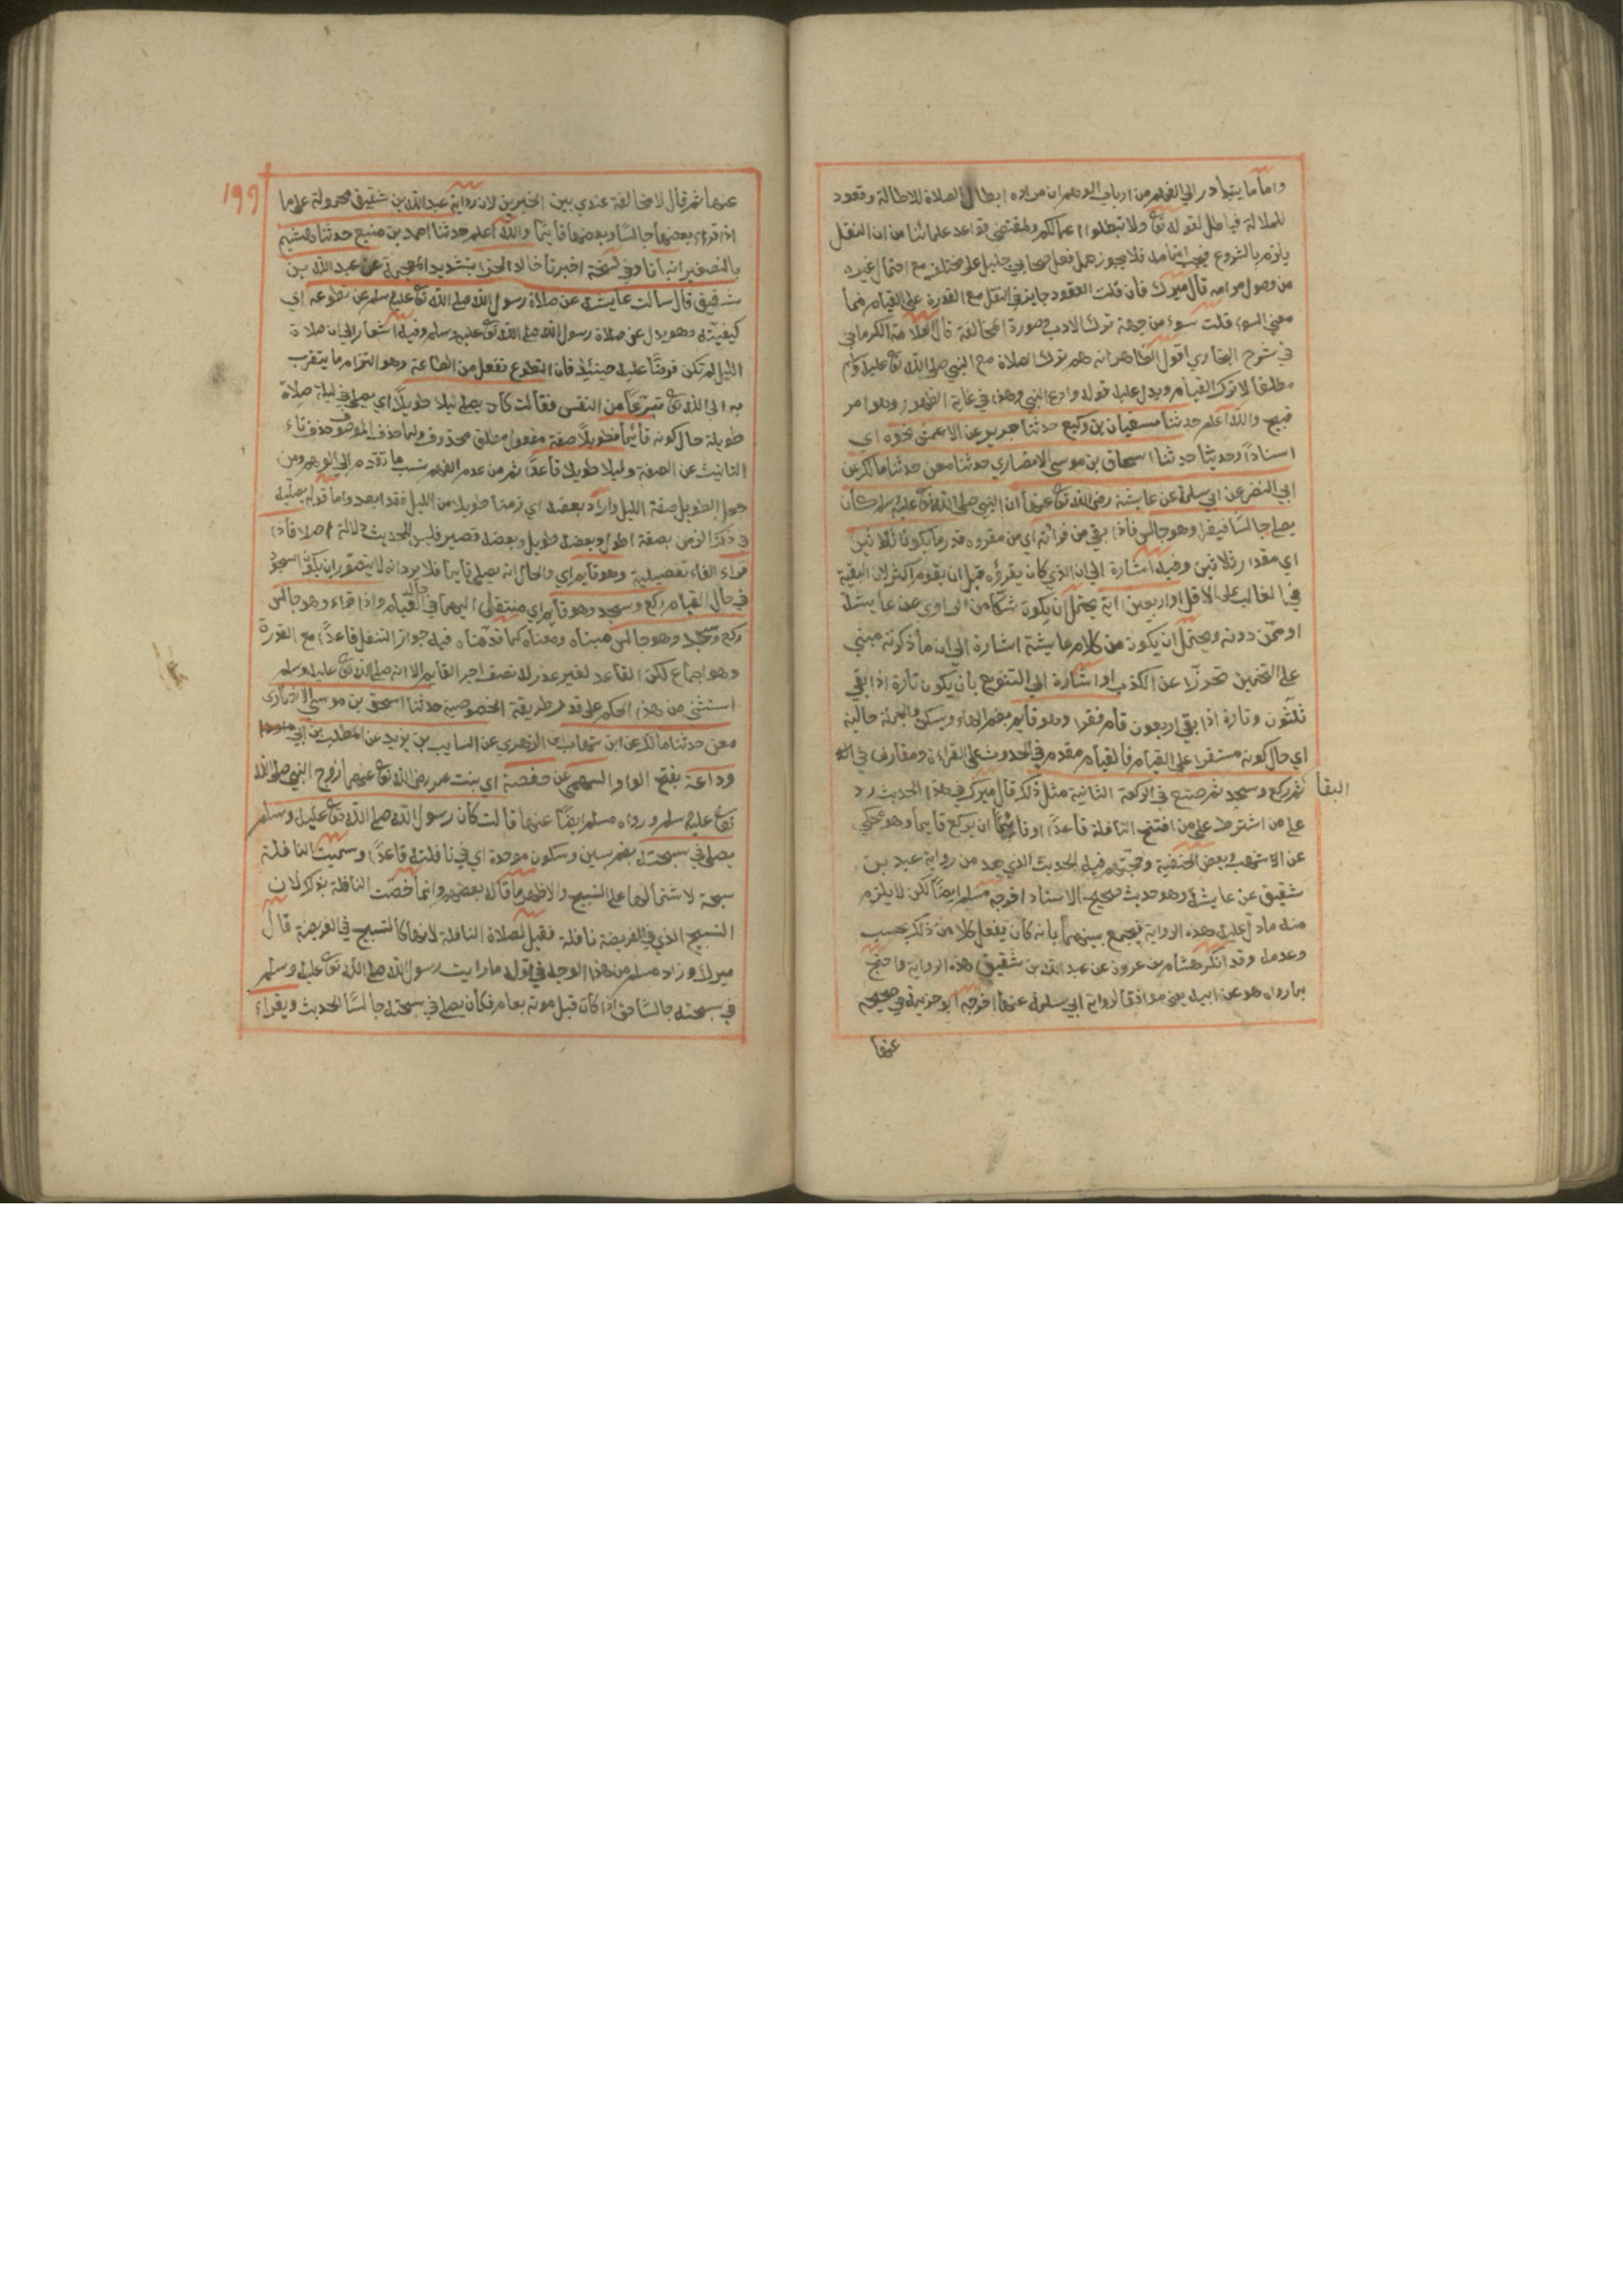 واما ما يتبادر الي الفهم من ارباب الوهم ان مراده ابطال الصلاة للاطالة وقعود
للملالة فباطل لقوله تع ولا تبطلوا اعمالكم ولمقتضي قواعد علمائنا من ان النفل
يلزم بالشروع فيجب اتمامه فلا يجوز حمل فعل صحابي جليل علي مختلف مع احتمال غيره
من وصول مرامه قال ميرك فان قلت القعود جايز في النفل مع القدرة علي القيام فما
معني السوء قلت سوء من جهة ترك الادب وصورة المخالفة قال العلامة الكرماني
في شرح البخاري اقول الظاهر انه هم بترك الصلاة مع النبي صلي الله تع عليه وسلم
مطلقا لا ترك القيام ويدل عليه قوله وادع النبي وهذا في غاية الظهور وهو امر
قبيح والله اعلم حدثنا سفيان بن وكيع حدثنا جرير عن الاعمش نحوه اي
اسنادا وحديثا حدثنا اسحاق بن موسي الانصاري حدثنا معن حدثنا مالك عن
ابي النضر عن ابي سلمة عن عايشة رضي الله تع عنها ان النبي صلي الله تع عليه وسلم كان
يصلي جالسا فيقرا وهو جالس فاذا بقي من قرائته اي من مقروه قدر ما يكون ثلاثين
اي مقدار ثلاثين وفيه اشارة الي ان الذي كان يقرؤه قبل ان يقوم اكثر لان البقية
في الغالب علي الاقل او اربعين اية يحتمل ان يكون شكا من الراوي عن عايشة
او ممن دونه ويحتمل ان يكون من كلام عايشة اشارة الي ان ما ذكرته مبني
علي التخمين تحرزا عن الكذب او اشارة الي التنويع بان يكون تارة اذا بقي
ثلثون وتارة اذا بقي اربعون قام فقرا وهو قايم بضم الهاء ويسكن والجملة حالية
اي حال كونه مستقرا علي القيام فالقيام مقدم في الحدوث علي القراءة ومقارن في
البقا
ثم ركع وسجد ثم صنع في الركعة الثانية مثل ذلك قال ميرك في هذا الحديث رد
علي من اشترط علي من افتتح النافلة قاعدا او قائما ان يركع قايما وهو محكي
عن الاشهب وبعض الحنفية وحجتهم فيه الحديث الذي بعد من رواية عبد بن
شقيق عن عايشة وهو حديث صحيح الاسناد اخرجه مسلم ايضا لكن لا يلزم
منه ما دل عليه هذه الرواية فيجمع بينهما بانه كان يفعل كلا من ذلك بحسب
وعدمه وقد انكر هشام بن عروة عن عبد الله بن شقيق هذه الرواية واحتج
بما رواه هو عن ابيه يعني موافقا لرواية ابي سلمة عنها اخرجه ابو خزيمة في صحيحه
عنها
١٩٩
عنها ثم قال لا مخالفة عندي بين الخبرين لان رواية عبد الله بن شقيق محمولة علي ما
اذا قراء بعضها جالسا وبعضها قائما والله اعلم حدثنا احمد بن منيع حدثنا هشيم
بالتصغير انبانا وفي نسخة اخبرنا خالد الحذا بتشديد المعجمة عن عبد الله بن
شقيق قال سالت عايشة عن صلاة رسول الله صلي الله تع عليه وسلم عن تطوعه اي
كيفيته وهو بدل عن صلاة رسول الله صلي الله تع عليه وسلم وفيه اشعار الي ان صلاة
الليل لم تكن فرضا عليه حينئذ فان التطوع تفعل من الطاعة وهو التزام ما يتقرب
به الي الله تع تبرعا من النفس فقالت كان يصلي ليلا طويلا اي يصلي في ليلة صلاة
طويلة حال كونه قائما فطويلا صفة مفعول مطلق محذوف ولما حذف الموصوف حذف تاء
التانيث عن الصفة وليلا طويلا قاعدا ثم من عدم الفهم نسب ما تقدم الي الوهم ومن
جعل الطويل صفة الليل واراد بعضه اي زمنا طويلا من الليل فقد ابعد واما قوله يصليه
في ذكر الزمن بصفة اطول وبعضه طويل وبعضه قصير فليس للحديث دلالة اصلا فاذا
قراء الفاء تفصيلية وهو قايم اي والحال انه يصلي قايما فلا يرد انه لا يتصور ان يكون السجود
في حال القيام ركع وسجد وهو قايم اي منتقلا اليهما في حالة القيام واذا قراء وهو جالس
ركع وسجد وهو جالس مبناه ومعناه كما قدمناه فيه جواز التنفل قاعدا مع القدرة
وهو اجماع لكن القاعد لغير عذر له نصف اجر القايم الا انه صلي الله تع عليه وسلم
استثني من هذا الحكم علي قدم طريقة الخصوصية حدثنا اسحق بن موسي الانصاري
معن حدثنا مالك عن ابن شهاب اي الزهري عن السايب بن يزيد عن المطلب بن ابي
وداعة بفتح الواو السهمي عن حفصة اي بنت عمر رضي الله تع عنهم ازوج النبي صلي الله
تع عليه وسلم ورواه مسلم ايضا عنها قالت كان رسول الله صلي الله تع عليه وسلم
يصلي في سبحته بضم سين وسكون موحدة اي في نافلته قاعدا وسميت النافلة
سبحة لاشتمالها علي التسبيح والاظهر ما قاله بعضهم وانما خصت النافلة بذلك لان
التسبيح الذي في الفريضة نافلة فقيل لصلاة النافلة لانها كالتسبيح في الفريضة قال
ميرك وزاد مسلم من هذا الوجه في قوله ما رايت رسول الله صلي الله تع عليه وسلم
في سبحته جالسا حتي اذا كان قبل موته بعام فكان يصلي في سبحته جالسا الحديث ويقراء